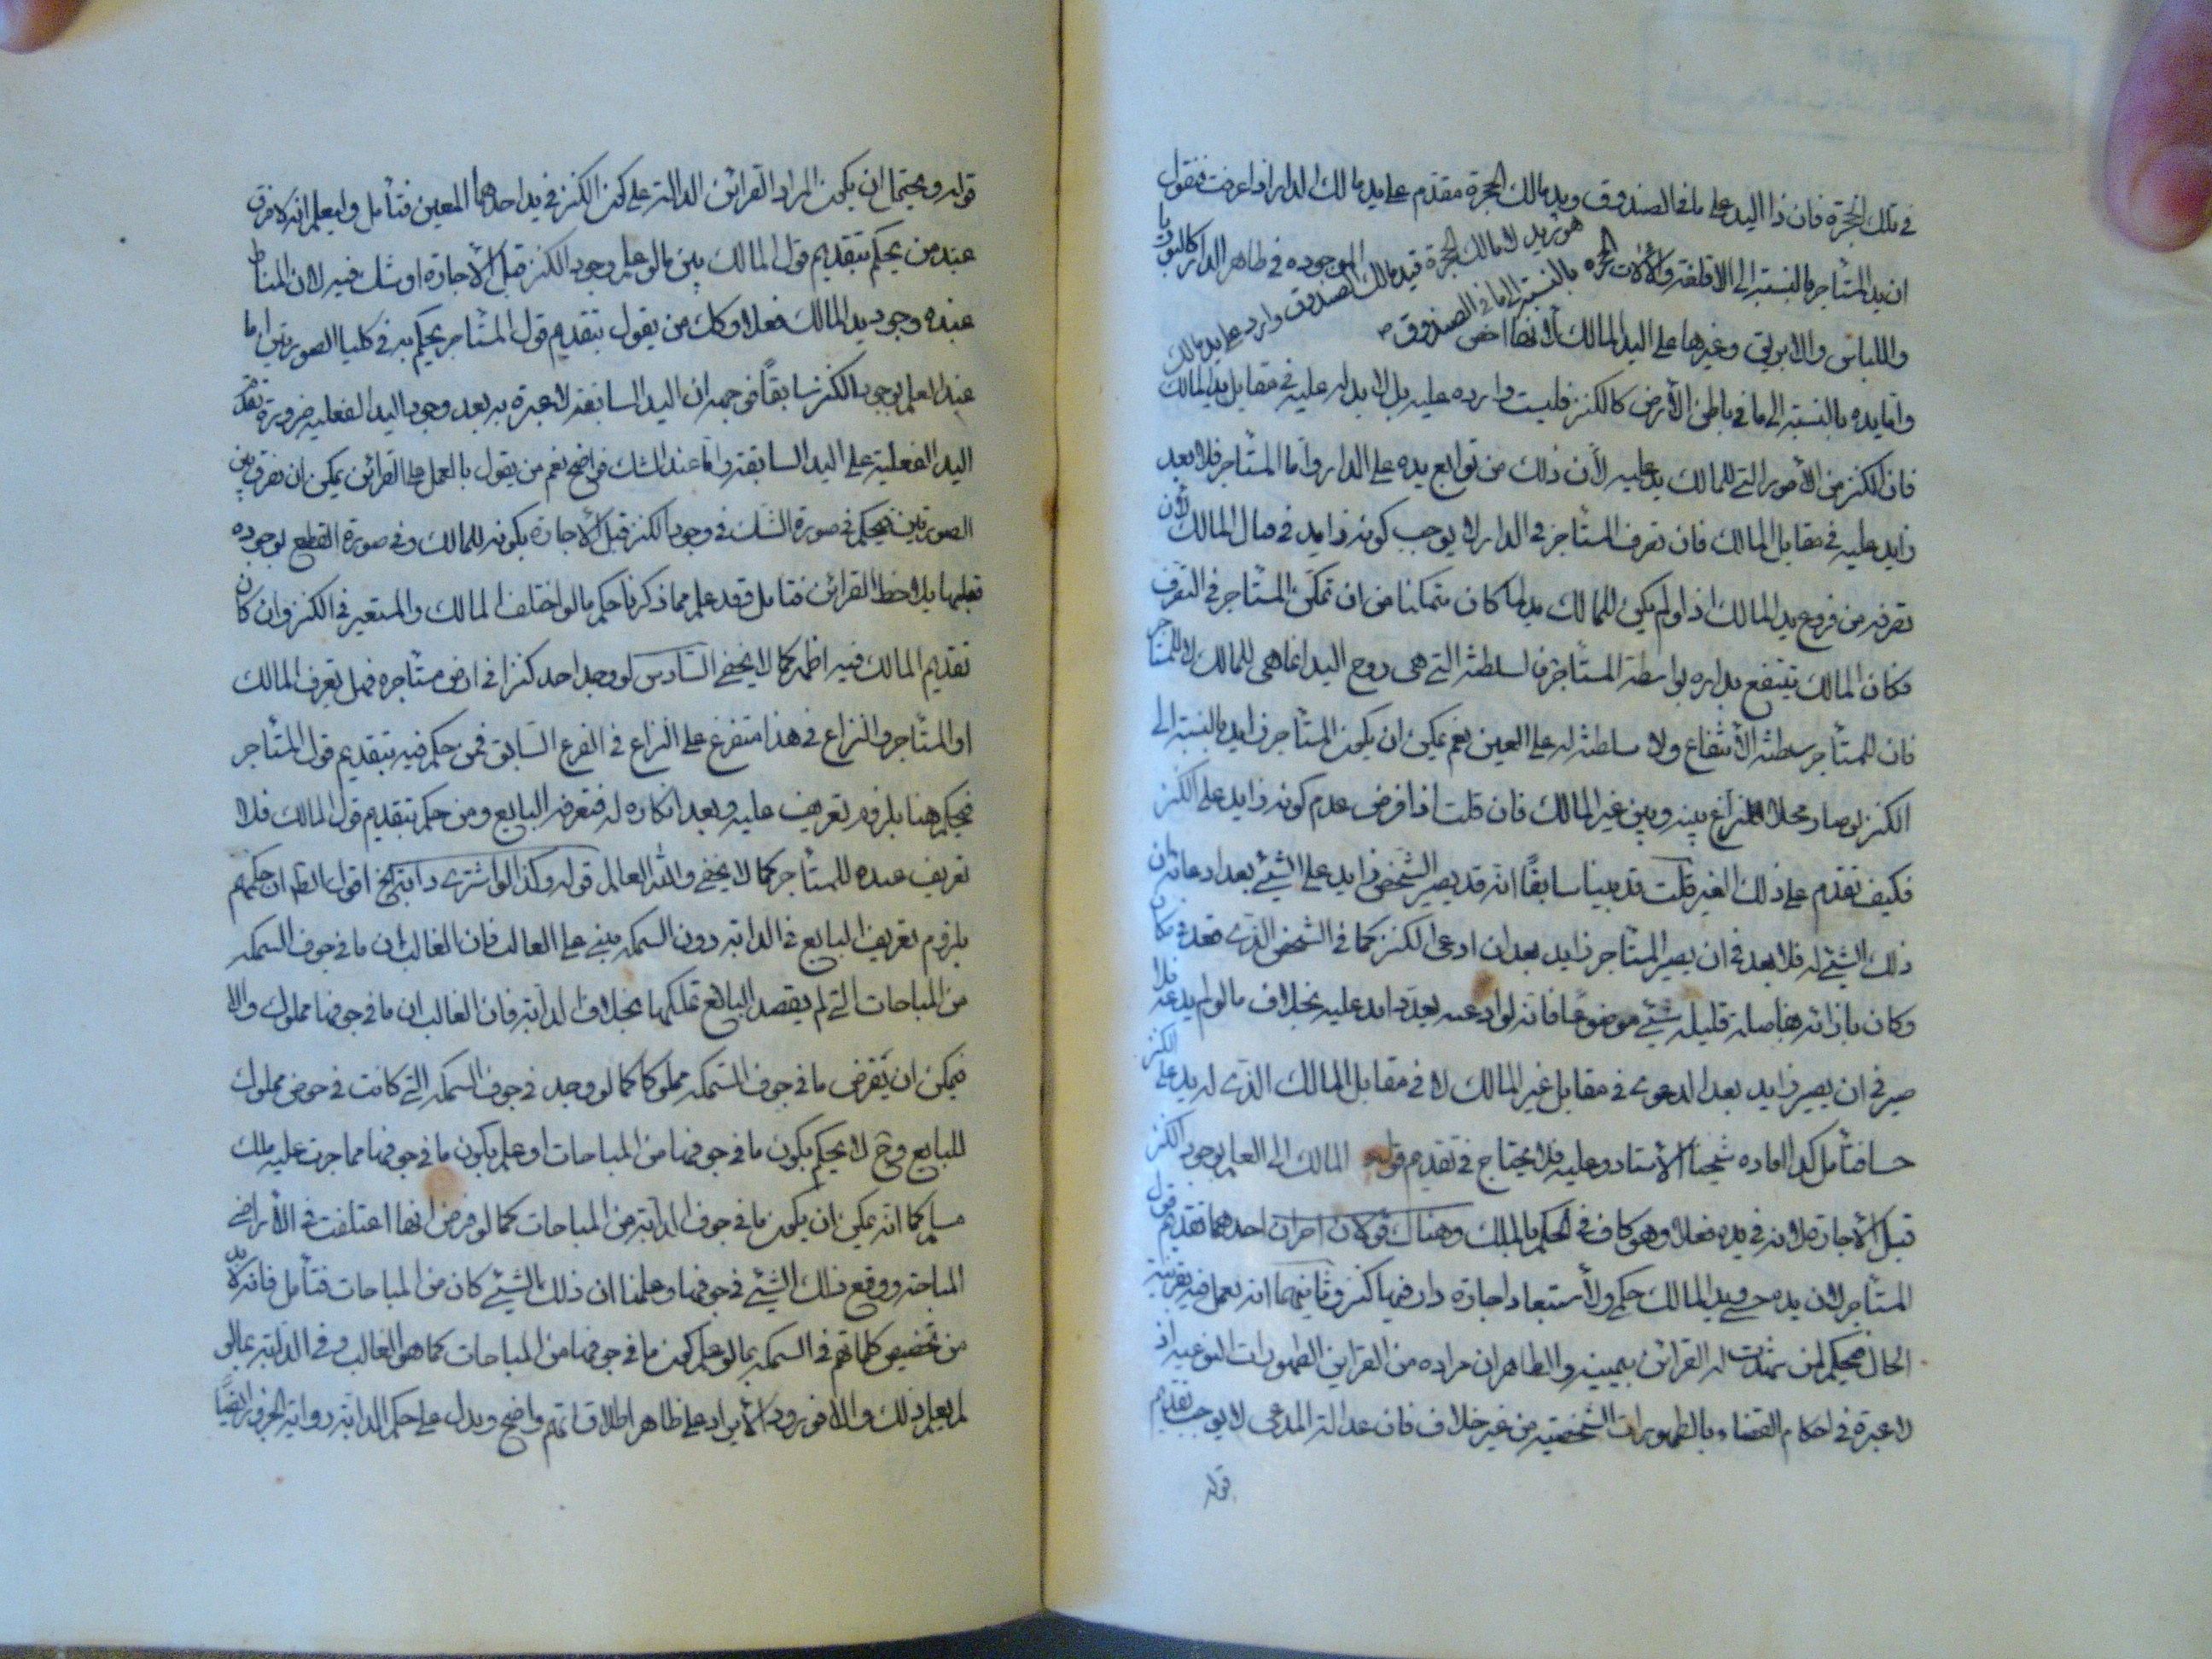 في تلك الحجرة فان ذا اليد على ما في الصندوق ويد مالك الحجرة مقدم على يد مالك الدار اذا عرفت فنقول
ان يد المستأجر بالنسبة الى الموجوده في ظاهر الدار
واللباس والابريق وغيرها على اليد المالك لانها اخص
وامّا يده بالنسبة الى ما في باطن الأرض كالكنز فليست وارده عليه بل لا يد له عليه في مقابل يد المالك
فان الكنز من الأمور التي للمالك يد عليه لأن ذلك من توابع يده على الدار وامّا المستأجر فلا يعد
ذايد عليه في مقابل المالك فان تصرف المستأجر في الدار لا يوجب كونه ذايد في مال المالك لأن
تصرفه من فروع يد المالك اذ لو لم يكن للمالك يد لما كان متمكنا من ان تمكن المستأجر في التصرف
فكان المالك ينتفع بداره بواسطة المستأجر فالسلطنة التي هي روح اليد انما هي للمالك لا للمستأجر
فان للمستأجر سلطنة الأنتفاع ولا سلطنة له على العين نعم يمكن ان يكون المستأجر ذايد بالنسبة الى
الكنز لو صار محلا للنزاع بينه وبين غير المالك فان قلت اذا فرض عدم كونه ذايد على الكنز
فكيف تقدم على ذلك الغير قلت قد بينا سابقاً انه قد يصير الشخص ذايد على الشيء بعد ادعائه ان
ذلك الشيء له فلا بعد في ان يصير المستأجر ذايد بعد ان ادعى الكنز كما في الشخص الذي قعد في مكان
وكان بازائه بفاصلة قليله شيء موضوعا فانه لو ادعيه يعد ذايد عليه بخلاف ما لو لم يدعه فلا
ضير في ان يصير ذايد بعد الدعوى في مقابل غير المالك لا في مقابل المالك الذي له يد على الكنز
حسا فتأمل كذا افاده شيخنا الأستاد وعليه فلا يحتاج في تقديم قول المالك الى العلم بوجود الكنز
قبل الأجارة لانه في يده فعلا وهو كاف في الحكم بالملك وهناك قولان اخران احدهما تقديم قول
المستأجر لان يده حسي ويد المالك حكمي ولأستبعاد اجارة دار فيها كنز وثانيهما انه يعمل فيه بقرينة
الحال فيحكم لمن شهدت له القرائن بيمينه والظاهر ان مراده من القراين الظهورات النوعيه اذ
لا عبرة في احكام القضاء بالظهورات الشخصيه من غير خلاف فان عدالة المدعى لا يوجب تقديم
قوله
قوله ويحتمل ان يكون المراد القرائن الدالة على كون الكنز في يد احدهما المعين فتأمل وليعلم انه لا فرق
عند من يحكم بتقديم قول المالك بين ما لو علم وجود الكنز قبل الأجارة او شك فيه لان المناط
عنده وجود يد المالك فعلا وكك من يقول بتقديم قول المستأجر يحكم به في كلتا الصورتين اما
عند العلم بوجود الكنز سابقاً فمن جهة ان اليد السابقة لا عبرة به بعد وجود اليد الفعليه ضرورة تقدم
اليد الفعلية على اليد السابقة وامّا عند الشك فواضح نعم من يقول بالعمل على القرائن يمكن ان يفرق بين
الصورتين فيحكم في صورة الشك في وجود الكنز قبل الأجارة بكونه للمالك وفي صورة القطع بوجوده
قبلها يلاحظ القرائن فتامل وقد علم مما ذكرنا حكم ما لو اختلف المالك والمستعير في الكنز وان كان
تقديم المالك فيه اظهر كما لا يخفى السّادس لو وجد احد كنزا في ارض مستأجره فهل يعرف المالك
او المستأجر والنزاع في هذا متفرع على النزاع في الفرع السّابق فمن حكم فيه بتقديم قول المستأجر
فيحكم هنا بلزوم تعريف عليه وبعد انكاره له فتعرفه البايع ومن حكم بتقديم قول المالك فلا
تعريف عنده للمستأجر كما لا يخفى والله العالم قوله وكذا لو اشترى دابة الخ اقول الظ ان حكمهم
بلزوم تعريف البايع في الدابة دون السمكه مبني على الغالب فان الغالب ان ما في جوف السمكه
من المباحات التي لم يقصد البائع تملكها بخلاف الدابة فان الغالب ان ما في جوفها مملوك والا
فيمكن ان يفرض ما في جوف السّمكه مملوكا كما لو وجد في جوف السمكه التي كانت في حوض مملوك
للبايع وح لا يحكم بكون ما في جوفها من المباحات او علم بكون ما في جوفها مما جرت عليه ملك
مسلم كما انه يمكن ان يكون ما في جوف الدابة من المباحات كما لو فرض انها اعتلفت في الأراضي
المباحة ووقع ذلك الشيء في جوفها وعلمنا ان ذلك الشيء كان من المباحات فتأمل فانه لا بد
من تخصيص كلماتهم في السمكه بما لو علم كون ما في جوفها من المباحات كما هو الغالب وفي الدابة بما لو
لم يعلم ذلك والا فورود الأيراد على ظاهر اطلاقاتهم واضح ويدل على حكم الدابة رواية الجزور ايضًا